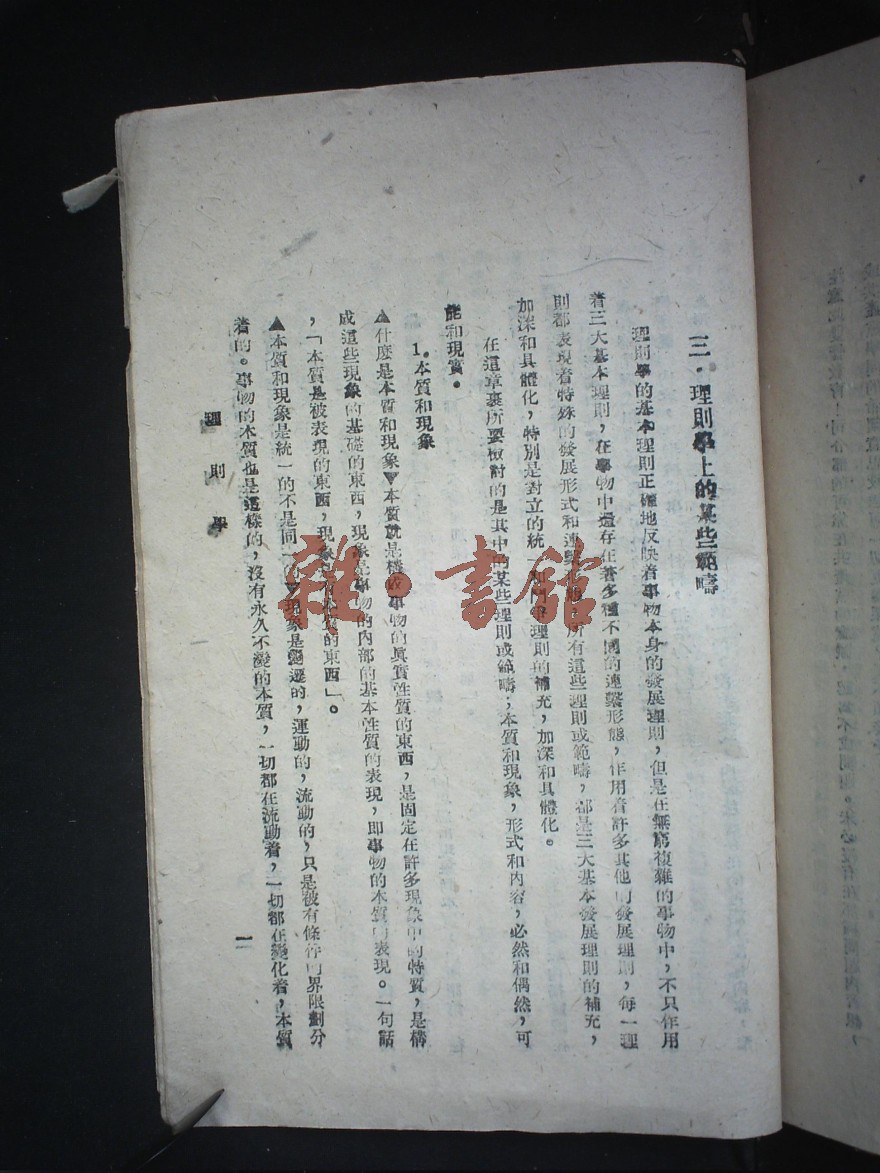 三・理則學上的某些範疇
理則學的基本理則正確地反映着事物本身的發展理則，但是在無窮複雜的事物中，不只作用
着三大基本理則，在事物中還存在著多種不同的連繫形態，作用着許多其他的發展理則，每一理
則都表現着特殊的發展形式和連繫 所有這些理則或範疇，都是三大基本發展理則的補充，
加深和具體化，特別是對立的統一 理則的補充，加深和具體化。
在這章裏所要檢討的是其中的某些理則或範疇；本質和現象，形式和內容，必然和偶然，可
能和現實。
1。本質和現象
▲什麼是本質和現象▼本質就是構成事物的眞實性質的東西，是固定在許多現象中的特質，是構
成這些現象的基礎的東西，現象是事物的內部的基本性質的表現，即事物的本質的表現。一句話
，「本質是被表現的東西，現象是 本質的東西」。
▲本質和現象是統一的不是同一的▼現象是變遷的，運動的，流動的，只是被有條件的界限劃分
着的。事物的本質也是這樣的，沒有永久不變的本質，一切都在流動着，一切都在變化着，本質
理則學
一
雜・書館